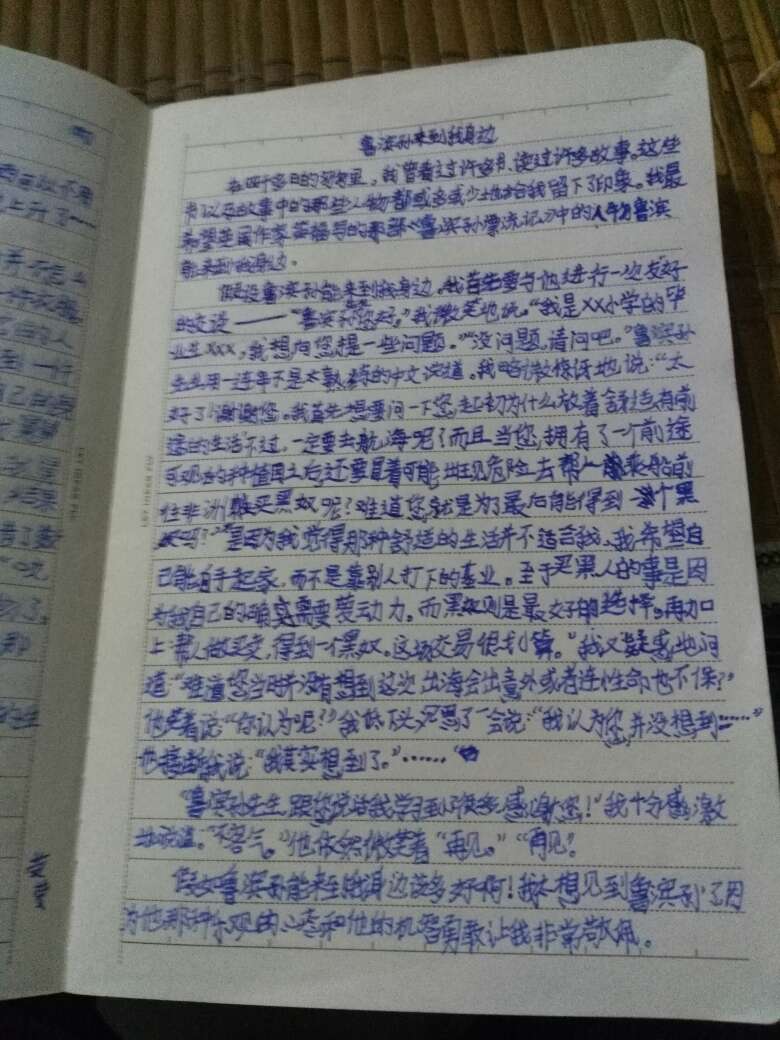 鲁滨孙来到我身边
在四十多日的努力里，我曾看过许多书，读过许多故事。这些
书以及故事中的那些人物都或多或少地给我留下了印象。我最
希望英国作家笛福写的那部《鲁滨孙漂流记》中的人物鲁滨
能来到我身边。
假设鲁滨孙能来到我身边，我首先要与他进行一次友好
的交谈——“鲁滨孙您好。”我微笑地说。“我是XX小学的毕
业生XXX，我想向您提一些问题。”“没问题，请问吧。”鲁滨孙
先生用一连串不是太熟练的中文说道。我略微惊讶地说：“太
好了！谢谢您。我首先想要问一下您，起初为什么放着舒适有前
途的生活不过，一定要去航海呢？而且当您，拥有了一个前途
可观的种植园之后还要冒着可能出现危险去帮人乘船前
往非洲贩买黑奴呢？难道您就是为了最后能得到一个黑
奴吗？”“是因为我觉得那种舒适的生活并不适合我、我希望自
己能白手起家，而不是靠别人打下的基业。至于买黑人的事是因
为我自己的确实需要劳动力。而黑奴则是最好的选择。再加
上帮人做买卖，得到一个黑奴。这场交易很划算。”我又疑惑地问
道：“难道您当时并没有想到这次出海会出意外或者连性命也不保？”
他笑着说：“你认为呢？”我低下头沉思了一会说：“我认为您，并没想到……”
他接断我说：“我其实想到了。”……
“鲁滨孙先生，跟您说话我学习到了很多，感谢您！”我十分感激
地说道。“不客气。”他依然微笑着“再见。”“再见”。
假如鲁滨孙能来到我身边该多好啊！我太想见到鲁滨孙了因
为他那种乐观的心态和他的机智勇敢让我非常敬佩。